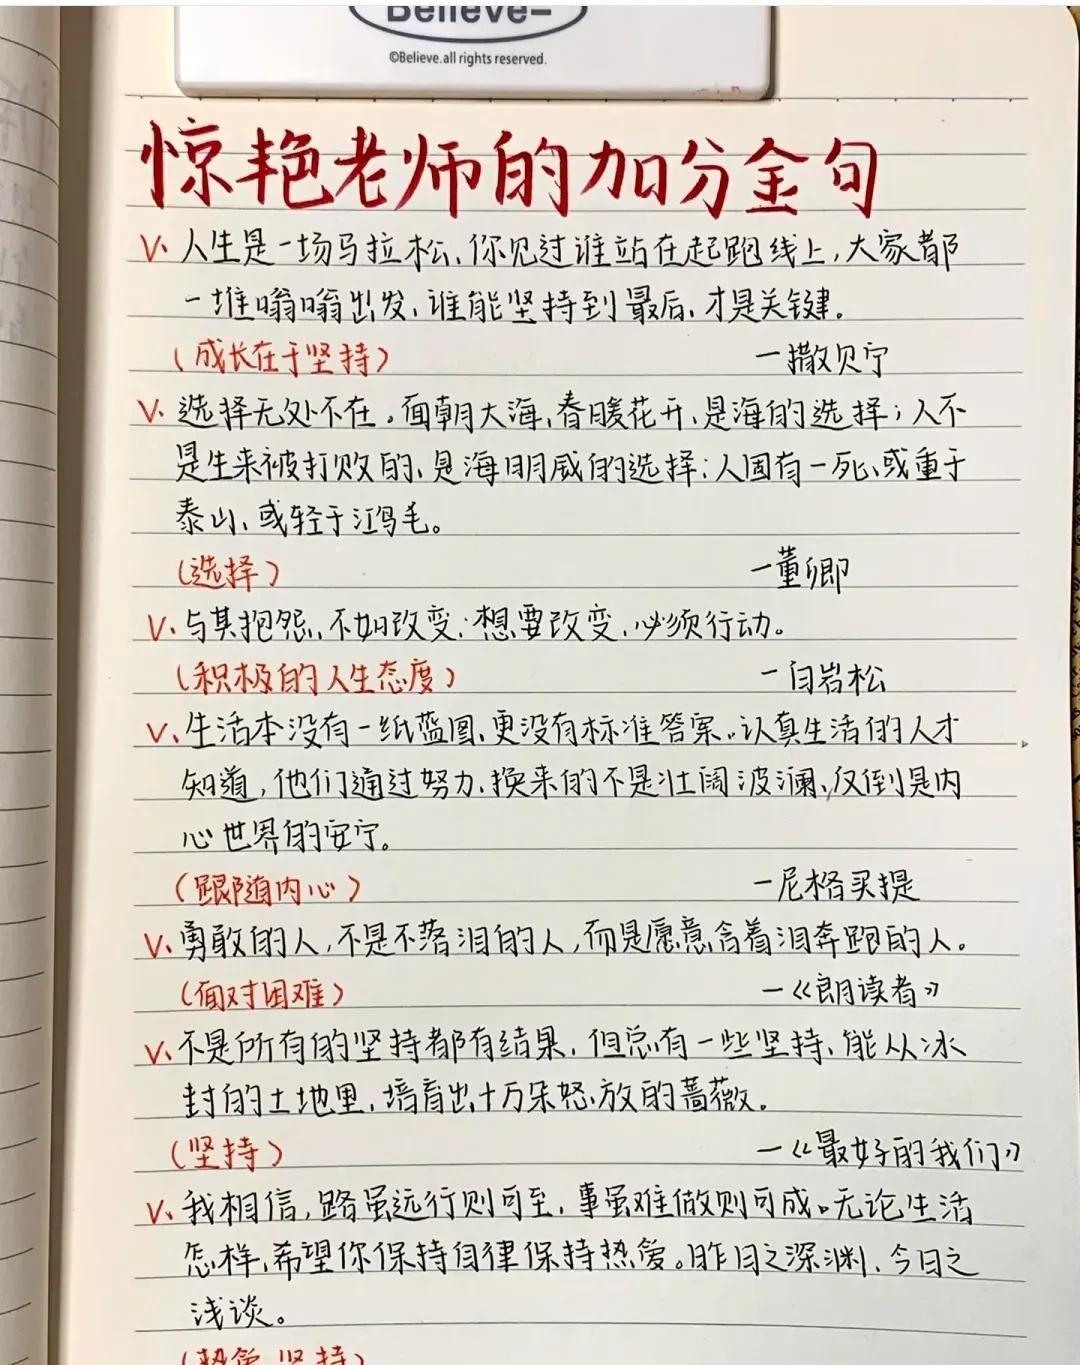 Believe
©Believe.all rights reserved.
惊艳老师的加分金句
V、人生是一场马拉松、你见过谁站在起跑线上,大家都
一堆嗡嗡出发、谁能坚持到最后、才是关键。
(成长在于坚持) 一撒贝宁
V、选择无处不在。面朝大海、春暖花开、是海的选择;人不
是生来被打败的、是海明威的选择;人固有一死、或重于
泰山、或轻于鸿毛。
(选择) 一董卿
V、与其抱怨、不如改变;想要改变、必须行动。
(积极的人生态度) 一白岩松
V、生活本没有一纸蓝图、更没有标准答案。认真生活的人才
知道,他们通过努力、换来的不是壮阔波澜、反倒是内
心世界的安宁。
(跟随内心) 一尼格买提
V、勇敢的人,不是不落泪的人,而是愿意含着泪奔跑的人。
(面对困难) 一《朗读者》
V、不是所有的坚持都有结果、但总有一些坚持、能从冰
封的土地里、培育出十万朵怒放的蔷薇。
(坚持) 一《最好的我们》
V、我相信,路虽远行则可至、事虽难做则可成。无论生活
怎样、希望你保持自律保持热爱。昨日之深渊、今日之
浅谈。